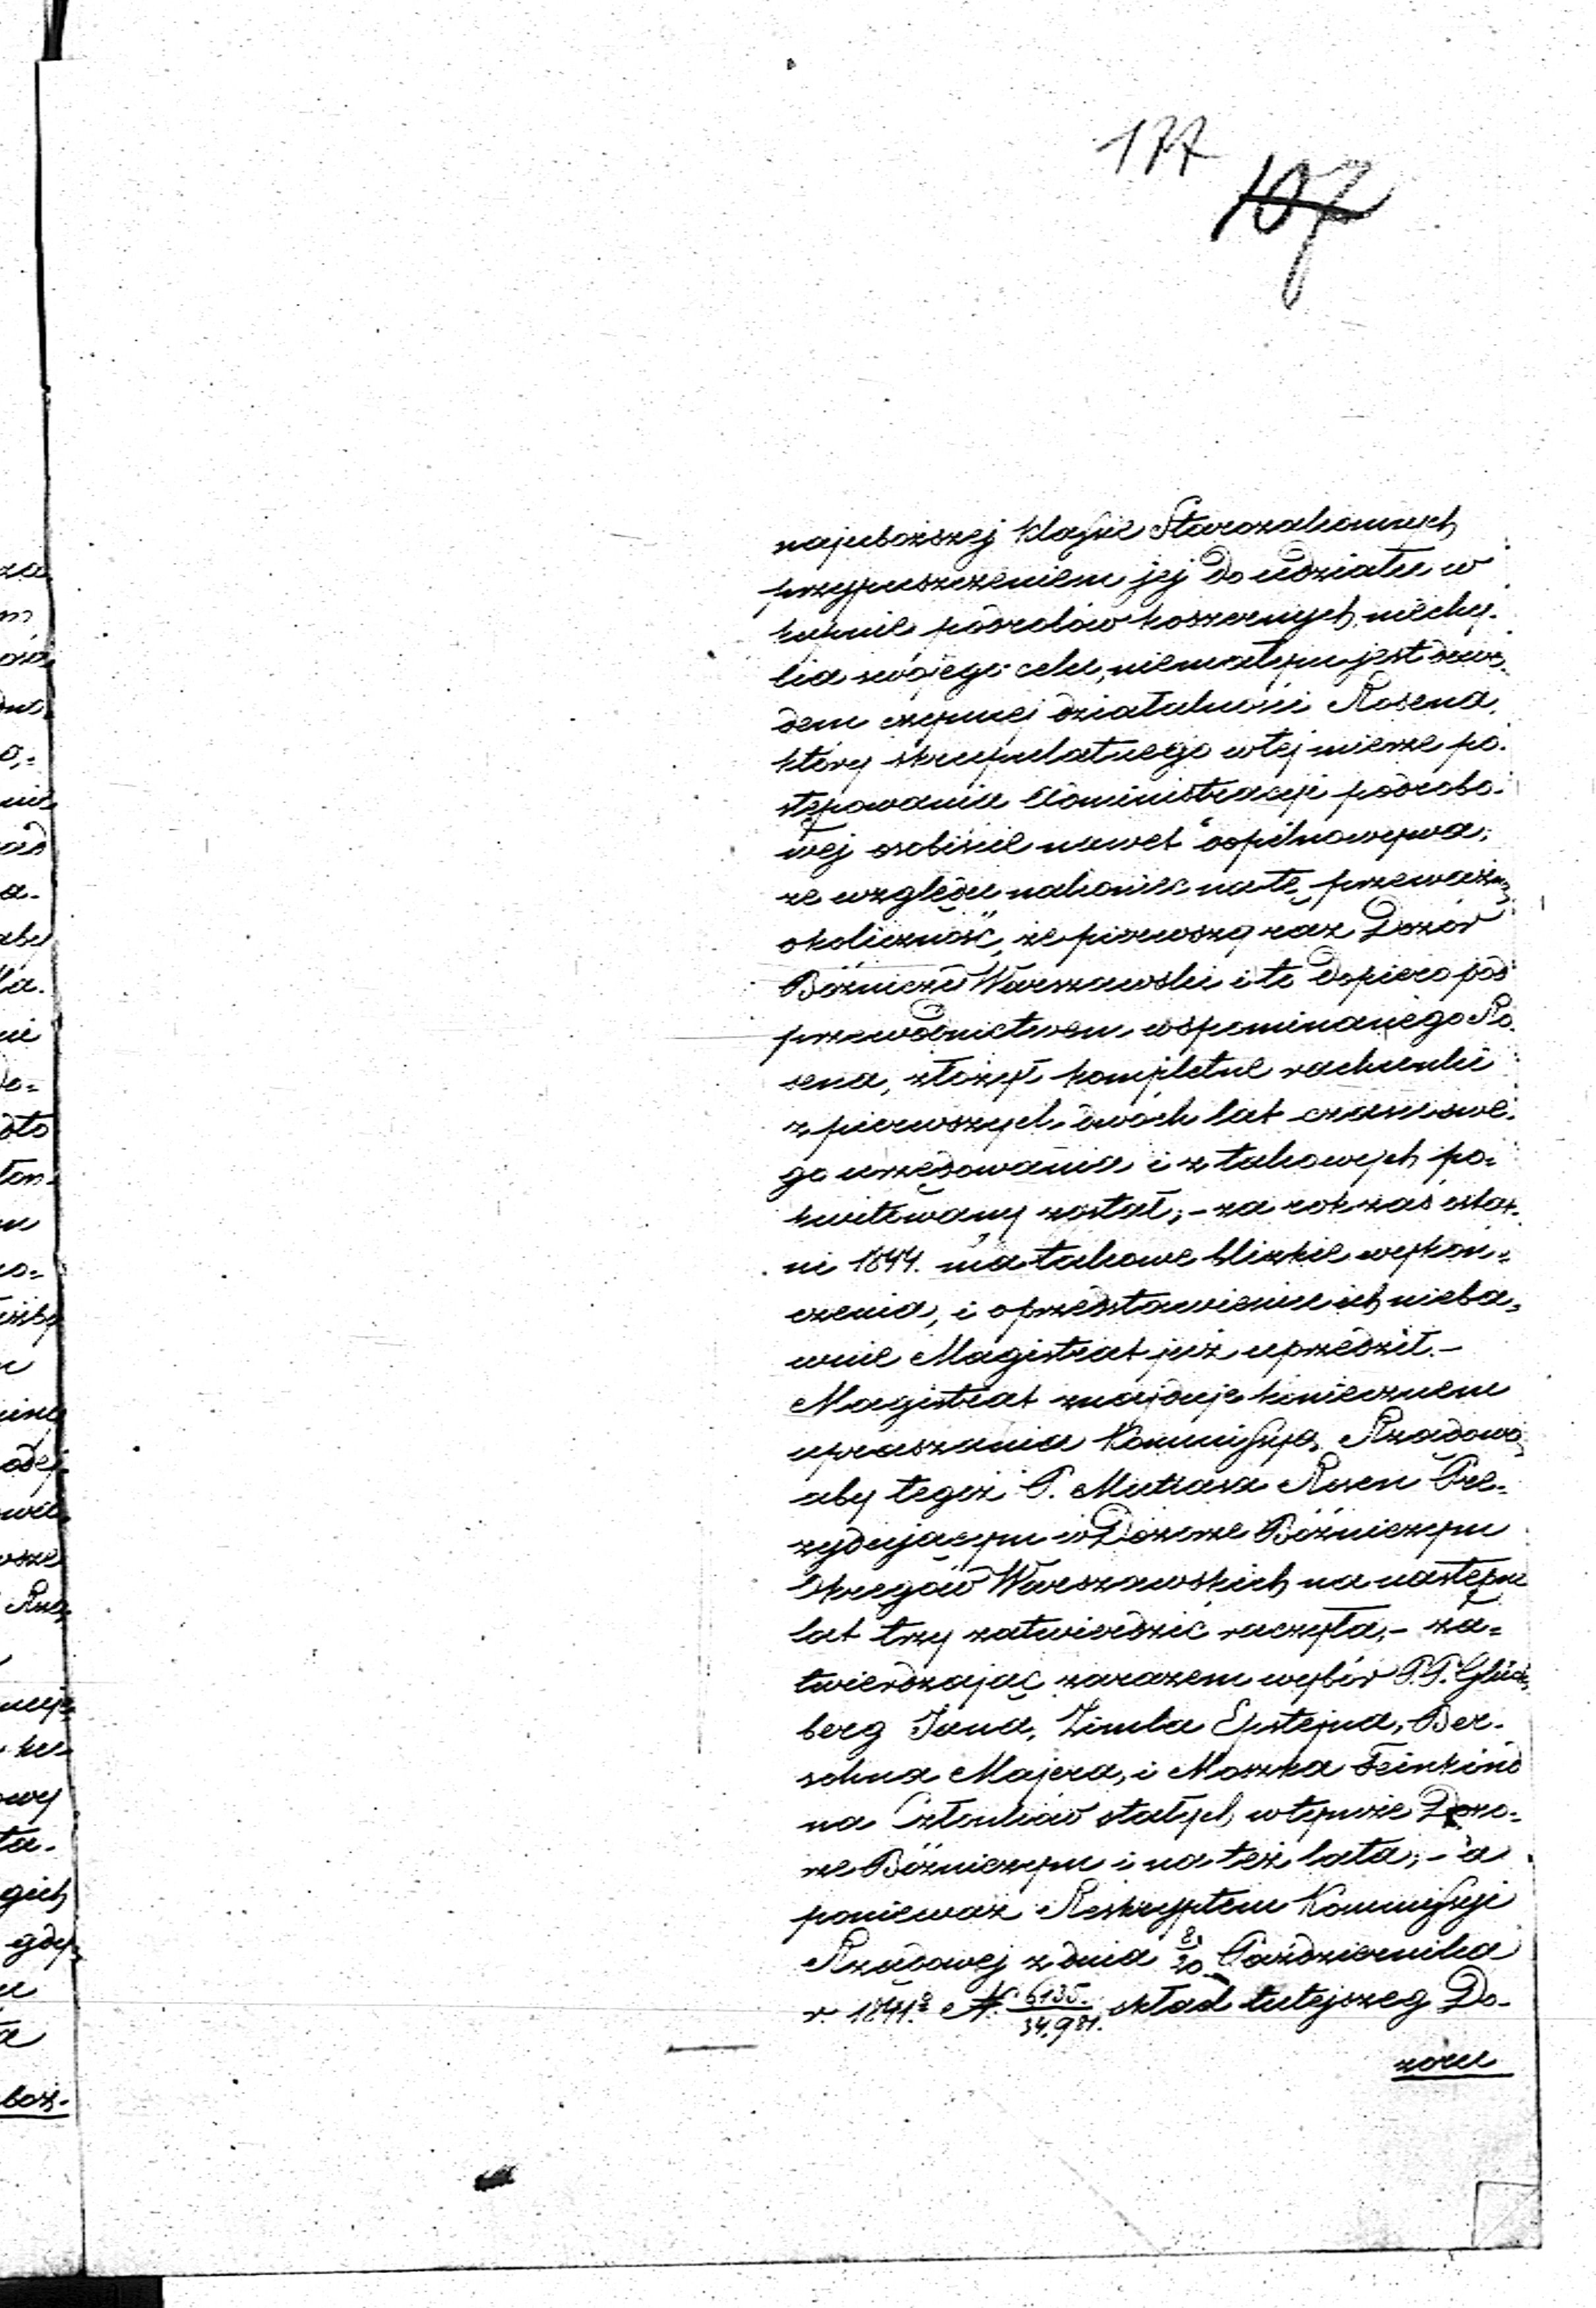 177
107
najuboższej klassie Starozakonnych
przypuszczeniem jej do udziału w
kupnie podrobów koszernych niechy-
bia swojego celu, niemałym jest dowo-
dem czynnej działalności Rosena,
który skrupulatnego w tej mierze po-
stępowania Administracyi podrobo-
wej osobiście nawet dopilnowywa;
ze względu nakoniec na tę przeważną
okoliczność, że pierwszy raz Dozór
Bóżniczy Warszawski i to dopiero pod
przewodnictwem wspominanego Ro-
sena, złożył kompletne rachunki
z pierwszych dwóch lat czasu swe-
go urzędowania i z takowych po-
kwitowany został; – za rok zaś ostat-
ni 1844. ma takowe bliskie wykoń-
czenia, i o przedstawieniu ich nieba-
wnie Magistrat już uprzedził. –
Magistrat znajduje koniecznem
upraszania Kommissyą Rządową
aby tegoż P. Mathiasa Rosen Pre-
zydującym w Dozorze Bóżniczym
Okręgów Warszawskich na następne
lat trzy zatwierdzić raczyła, – za-
twierdzając zarazem wybór P.P. Glücks-
berg Jana, Zimla Epstejna, Ber-
sohna Majera, i Moszka Feinkind
na Członków stałych w tymże Dozo-
rze Bóżniczym i na też lata; – a
ponieważ Reskryptem Kommissyi
Rządowej z dnia 8/20 Października
r. 1841. N. 6135/34,981. skład tutejszeg Do-
zoru